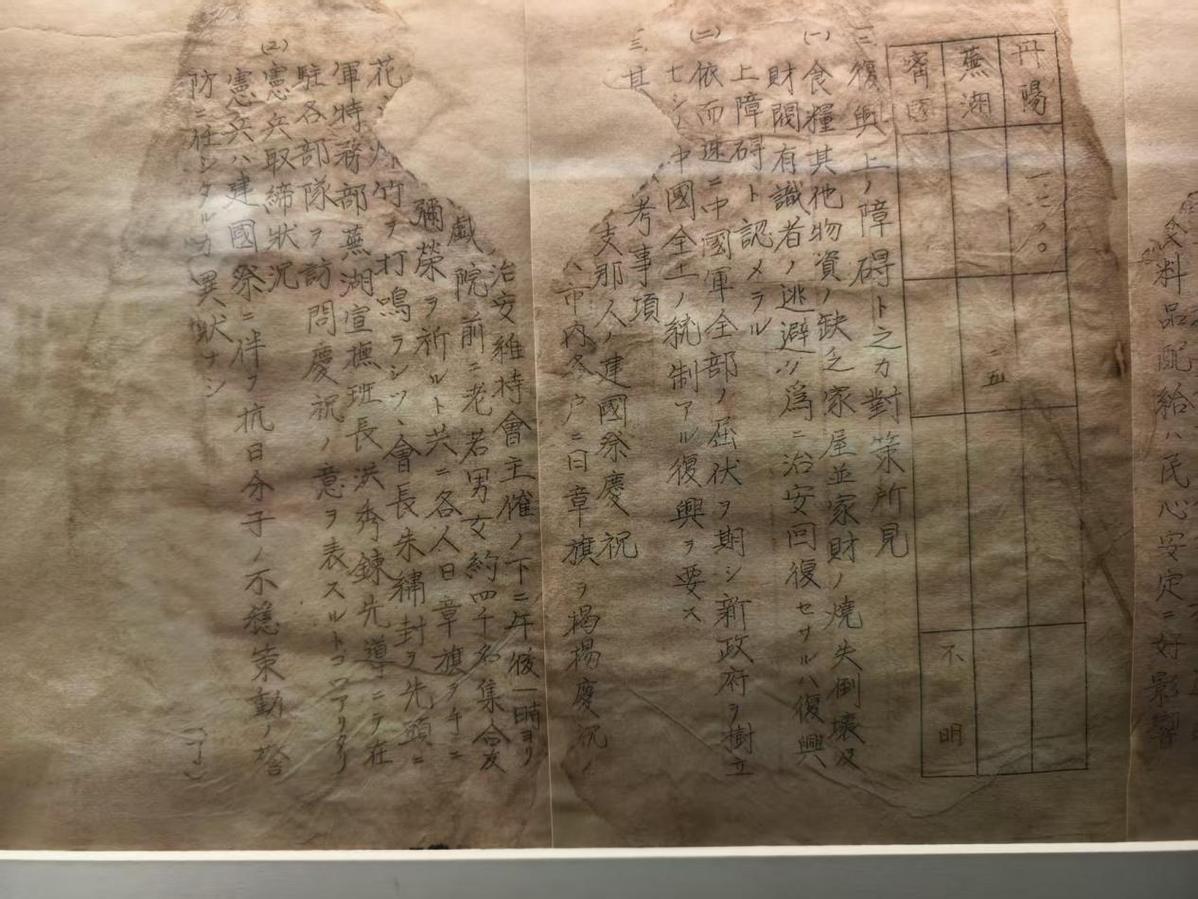 料品配給ハ民心安定ニ好影響
丹陽
蕪湖 二五
甯國 不明
二、復興上ノ障碍ト之カ對策所見
(一)食糧其他物資ノ缺乏家屋並家財ノ燒失倒壊及
財閥有識者ノ逃避ノ爲ニ治安回復セサルハ復興
上障碍ト認メラル
(二)依而速ニ中國軍全部ノ屈伏ヲ期シ新政府ヲ樹立
セシメ中國全土ノ統制アル復興ヲ要ス
三、其 考事項
支那人ノ建國祭慶祝
市内各戸ニ日章旗ヲ掲揚慶祝ノ
治安維持會主催ノ下ニ午後一時ヨリ
戯院前ニ老若男女約四千名集合友
彌榮ヲ祈ルト共ニ各人日章旗ヲ手ニ
花 竹ヲ打鳴ラシツ、會長朱繡封ヲ先頭ニ
軍特務部蕪湖宣撫班長洪秀錬先導ニテ在
駐各部隊ヲ訪問慶祝ノ意ヲ表スルトコロアリタリ
(2)憲兵取締状況
憲兵ハ建國祭ニ伴フ抗日分子ノ不穏策動ノ警
防ニ任シタルカ異状ナシ
(了)